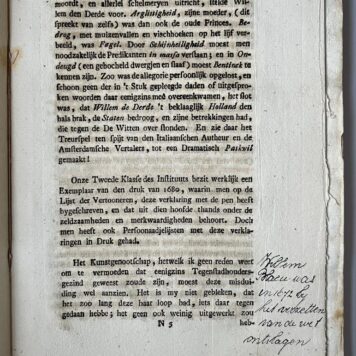 moordt, en allerlei schelmeryen uitricht, stelde Wil-
lem den Derde voor. Arglistigheid, zijne moeder, (dit
spreekt van zelfs) was dan ook de oude Princes. Be-
drog, met muizenvallen en vischhoeken op het lijf ver-
beeld, was Fagel. Door Schijnheiligheid moest men
noodzakelijk de Predikanten in massa verstaan; en in On-
deugd (een gebocheld dwergjen en slaaf) moest Bentinck te
kennen zijn. Zoo was de allegorie persoonlijk opgelost, en
schoon geen der in 't Stuk gepleegde daden of uitgespro-
ken woorden daar eenigzins meê overeenkwamen, het slot
was, dat Willem de Derde 't beklaaglijk Holland den
hals brak, de Staten bedroog, en zijne betrekkingen had,
die tegen de De Witten over stonden. En zie daar het
Treurspel ten spijt van den Italiaanschen Autheur en de
Amsterdamsche Vertalers, tot een Dramatisch Paskuil
gemaakt!
Onze Tweede Klasse des Instituuts bezit werklijk een
Exemplaar van den druk van 1680, waarin men op de
Lijst der Vertooneren, deze verklaring met de pen heeft
bygeschreven, en dat uit dien hoofde thands onder de
zeldzaamheden en merkwaardigheden behoort. Doch
men heeft ook Persoonadjelijsten met deze verkla-
ringen in Druk gehad.
Het Kunstgenootschap, hetwelk ik geen reden weet
om te vermoeden dat eenigzins Tegenstadhouders-
gezind geweest zoude zijn, moest deze misdui-
ding wel aanzien. Het is my niet gebleken, dat
het zoo lang deze haar loop had, iets daar tegen
gedaan hebbe; het geen ook weinig uitgewerkt zou
N 5
heb-
Willem
Blaeu was
in 1672 by
het verzetten
van de wet
ontslagen